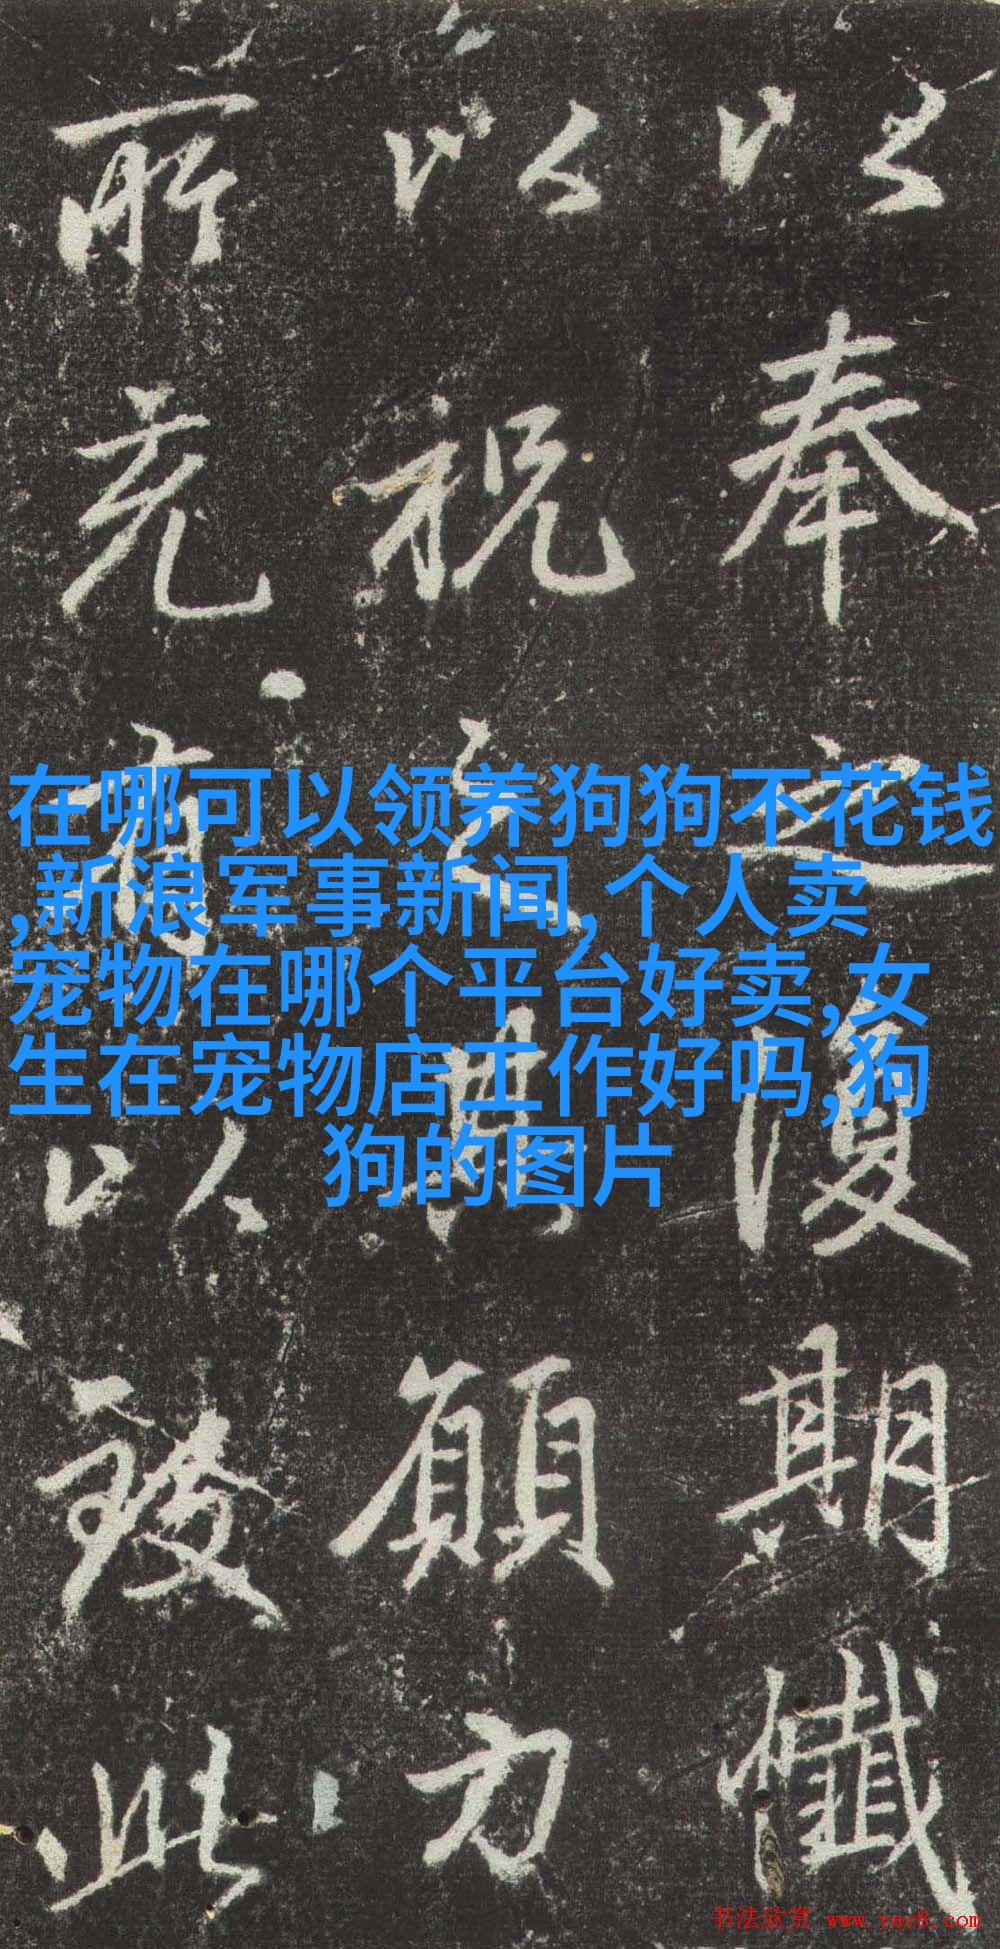 在哪可以领养狗狗不花钱
,新浪军事新闻,个人卖
宠物在哪个平台好卖,女
生在宠物店工作好吗,狗
狗的图片
以奉之復期懺
以祝願力
所以致此
书法欣赏 www.yac8.com